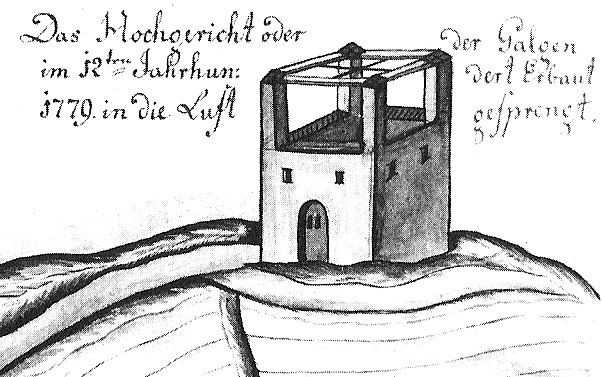 Das Hochgericht oder der Galgen
im 12ten Jahrhun: dert Erbaut
1779. in die Luft gesprengt.